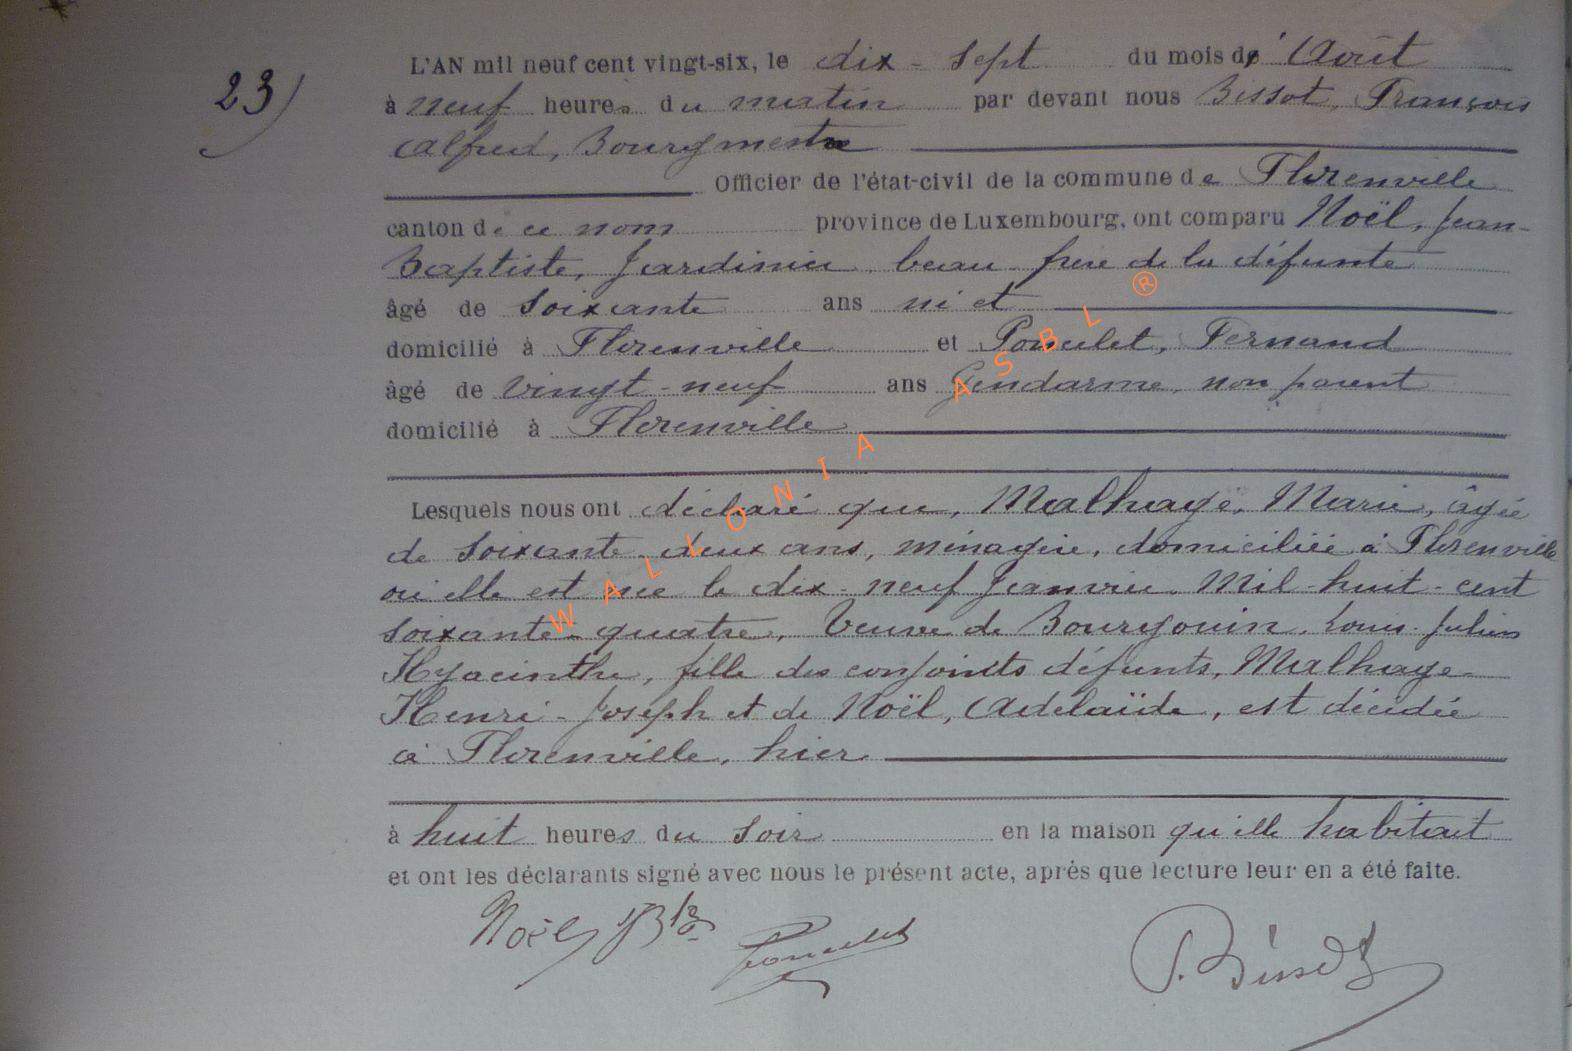 23)
L'AN mil neuf cent vingt-six, le dix-sept du mois d' Août
à neuf heures du matin par devant nous Bissot, François
Alfred, Bourgmestre
Officier de l'état-civil de la commune de Florenville
canton de ce nom province de Luxembourg, ont comparu Noël, Jean-
Baptiste, Jardinier, beau-frère de la défunte
âgé de soixante ans ni et
domicilié à Florenville et Poncelet, Fernand
âgé de vingt-neuf ans Gendarme, non parent
domicilié à Florenville
Lesquels nous ont déclaré que, Malhage, Marie, âgée
de soixante-deux ans, ménagère, domiciliée à Florenville
où elle est née le dix-neuf Janvier, Mil-huit-cent
soixante-quatre, Veuve de Bourgouin, Louis-Julien
Hyacinthe, fille des conjoints défunts, Malhage
Henri-Joseph et de Noël, Adelaïde, est décédée
à Florenville, hier
à huit heures du soir en la maison qu'elle habitait
et ont les déclarants signé avec nous le présent acte, après que lecture leur en a été faite.
Noël JBte Poncelet F. Bissot
WALLONIA ASBL ®